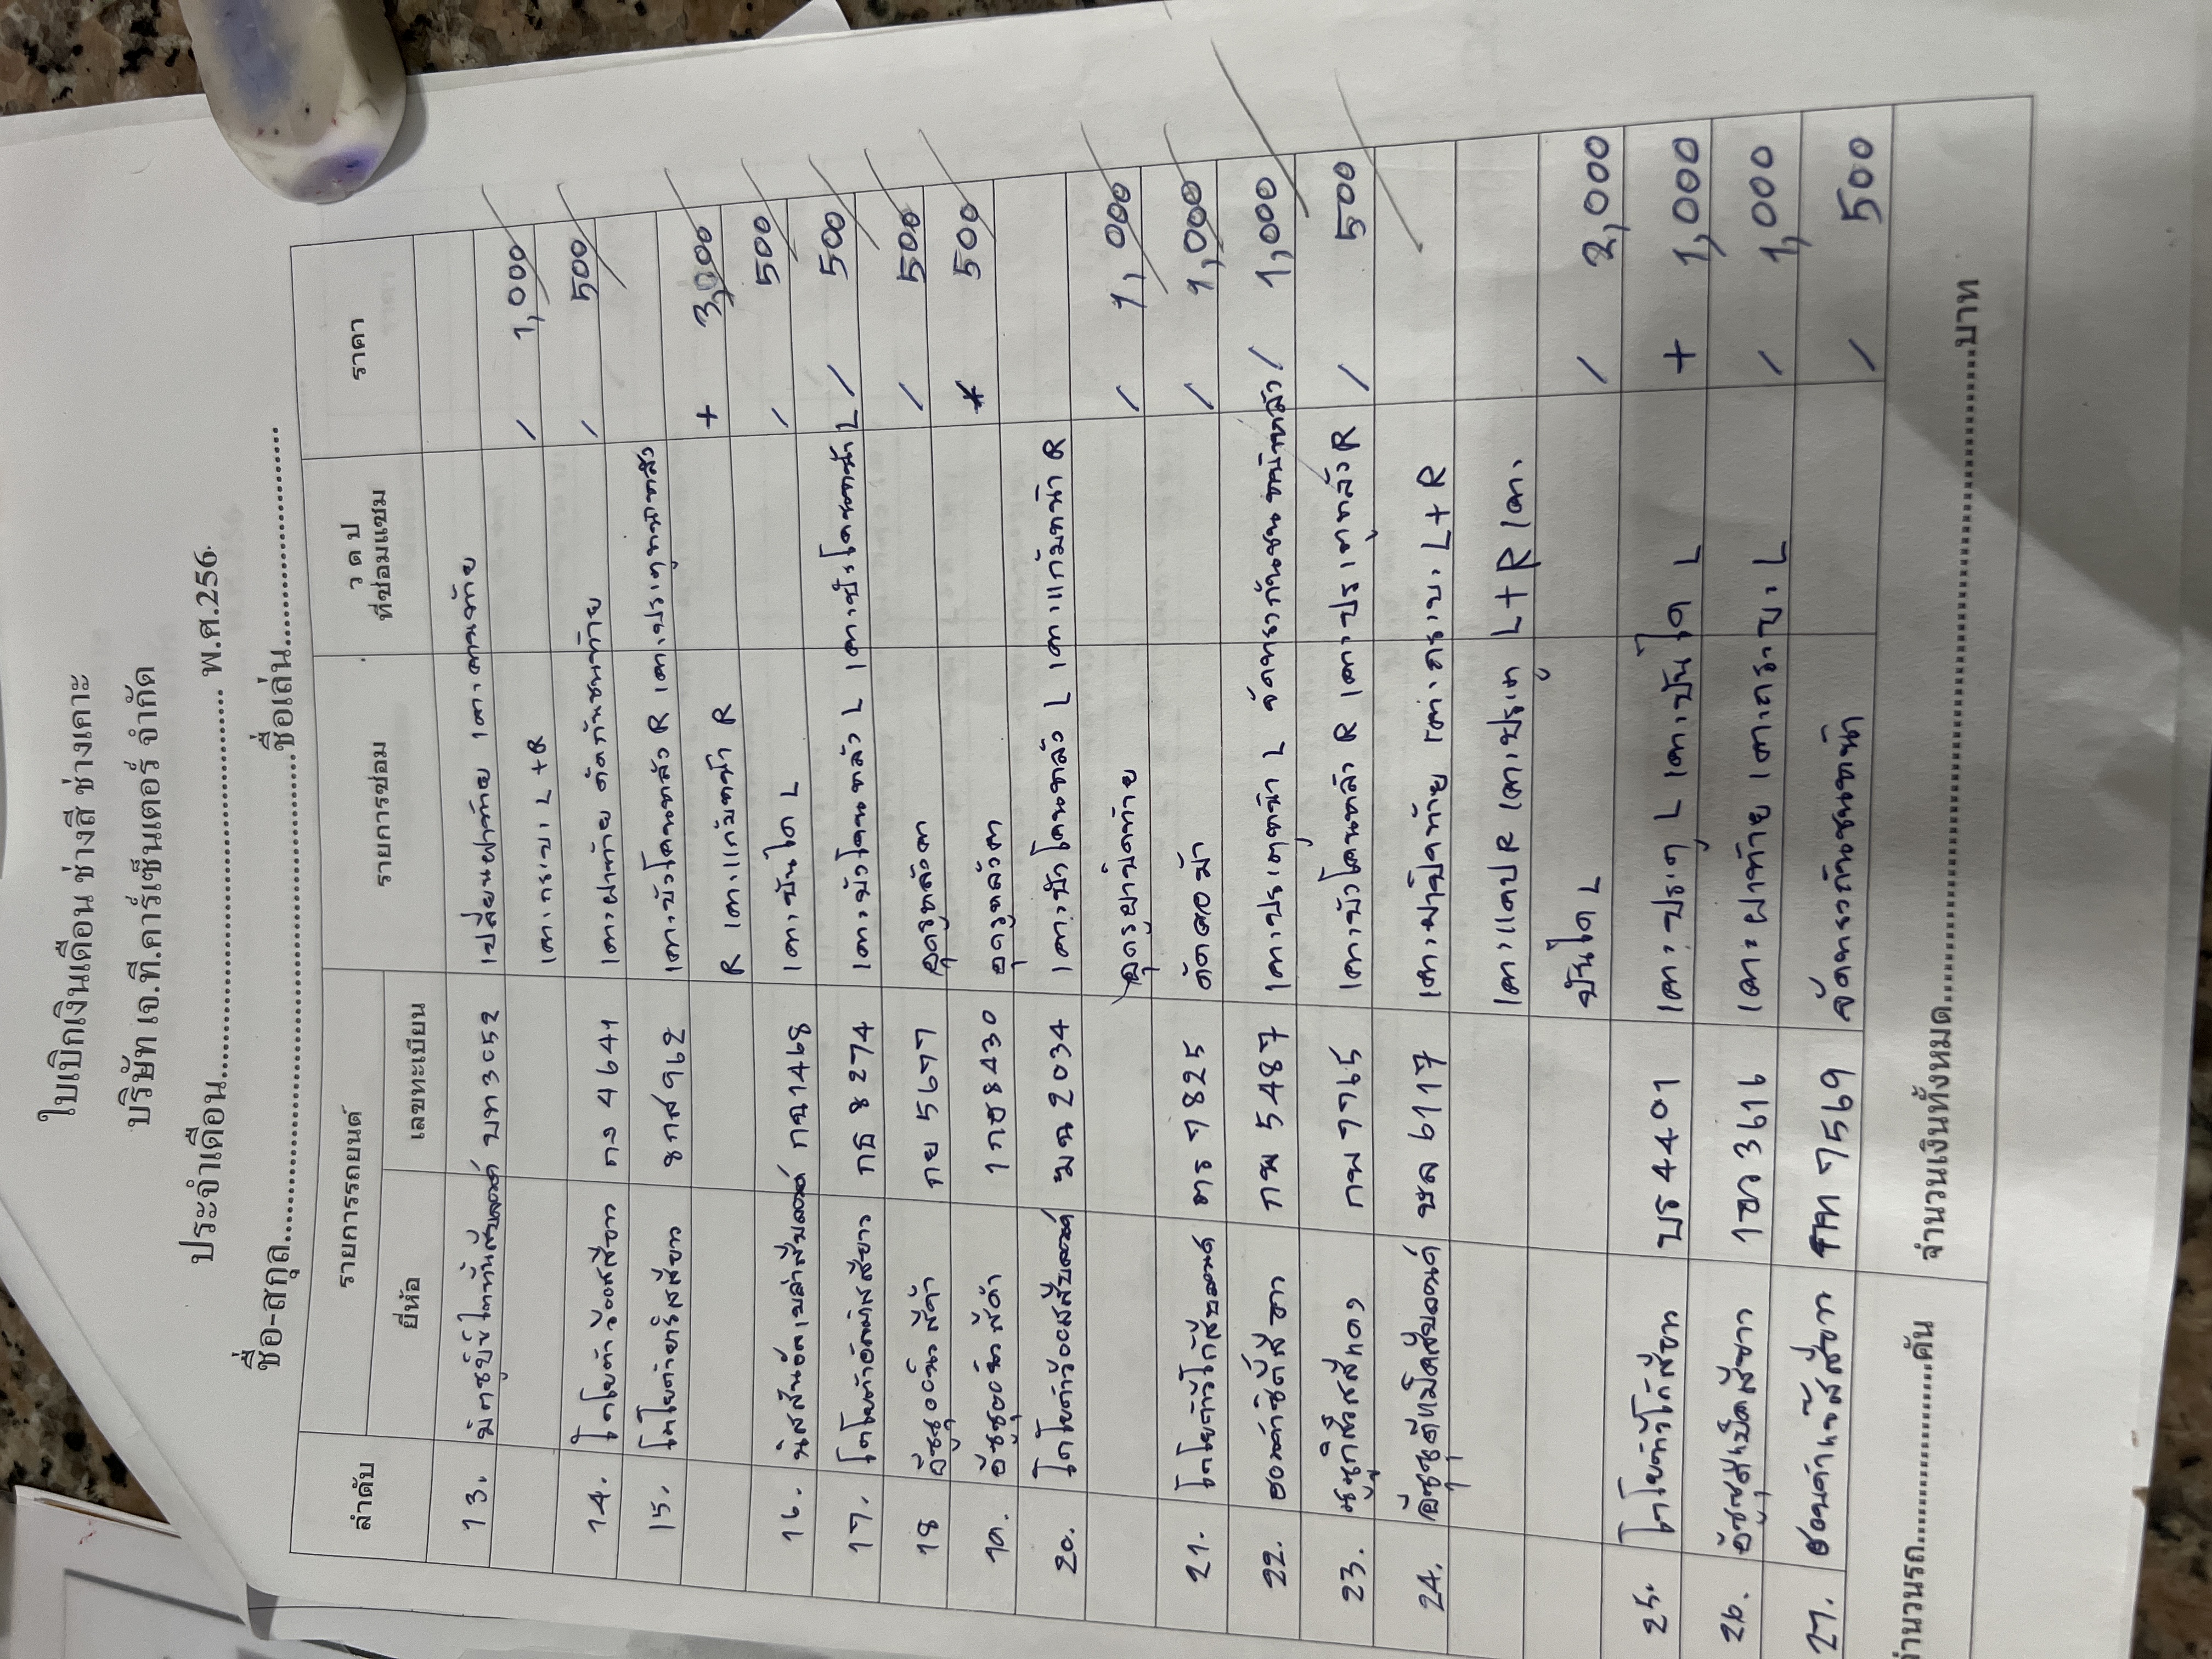 ใบเบิกเงินเดือน ช่างสี ช่างเคาะ
บริษัท เจ.ที.คาร์เซ็นเตอร์ จำกัด
ประจำเดือน........................................ พ.ศ.256
ชื่อ-สกุล........................................ชื่อเล่น........................
ลำดับ รายการรถยนต์ รายการซ่อม ว ด ป ที่ซ่อมแซม ราคา
ยี่ห้อ เลขทะเบียน
13. บท 3052 เปลี่ยนฝาท้าย เคาะคานท้าย
เคาะกระบะ L+R / 1,000
14. โตโยต้าวีออสสีขาว กง 4641 เคาะฝาท้าย ตัดกันชนท้าย / 500
15. โตโยต้ายาริสสีขาว 8กส 962 เคาะบังโคลนหลัง R เคาะประตูหน้าหลัง
R เคาะแก้มหน้า R + 3,000
16. กฉ 1468 เคาะบันได L / 500
17. โตโยต้าอัลติสสีขาว กธ 8274 เคาะบังโคลนหลัง L เคาะบังโคลนหน้า L / 500
18 อีซูซุ สีดำ กย 5677 อุดรูหลังคา / 500
19. อีซูซุ สีดำ 1กฮ 8430 อุดรูหลังคา * 500
20. โตโยต้าวีออสสีบลอนด์ ฆฉ 2034 เคาะบังโคลนหลัง L เคาะแก้มหน้า R
อุดรูฝาปิดท้าย / 1,000
21. โตโยต้าวีโก้สีบลอนด์ ตร 7825 ตัดคอม้า / 1,000
22. ฮอนด้าซิตี้สีขาว กพ 5487 เคาะประตูหน้า L / 1,000
23. สีแดง กพ 7765 เคาะบังโคลนหลัง R เคาะประตูหลัง R / 500
24. ขล 6117 เคาะฝาปิดท้าย เคาะกระบะ L+R
เคาะแคป R เคาะประตู L+R เคาะ
บันได L / 2,000
25. โตโยต้าวีโก้สีขาว บร 4401 เคาะประตู L เคาะบันได L + 1,000
26. 1ฒว 3616 เคาะฝาท้าย เคาะกระบะ L / 1,000
27. ฮอนด้าแจ๊สสีขาว 7569 / 500
จำนวนรถ....................คัน จำนวนเงินทั้งหมด........................................บาท